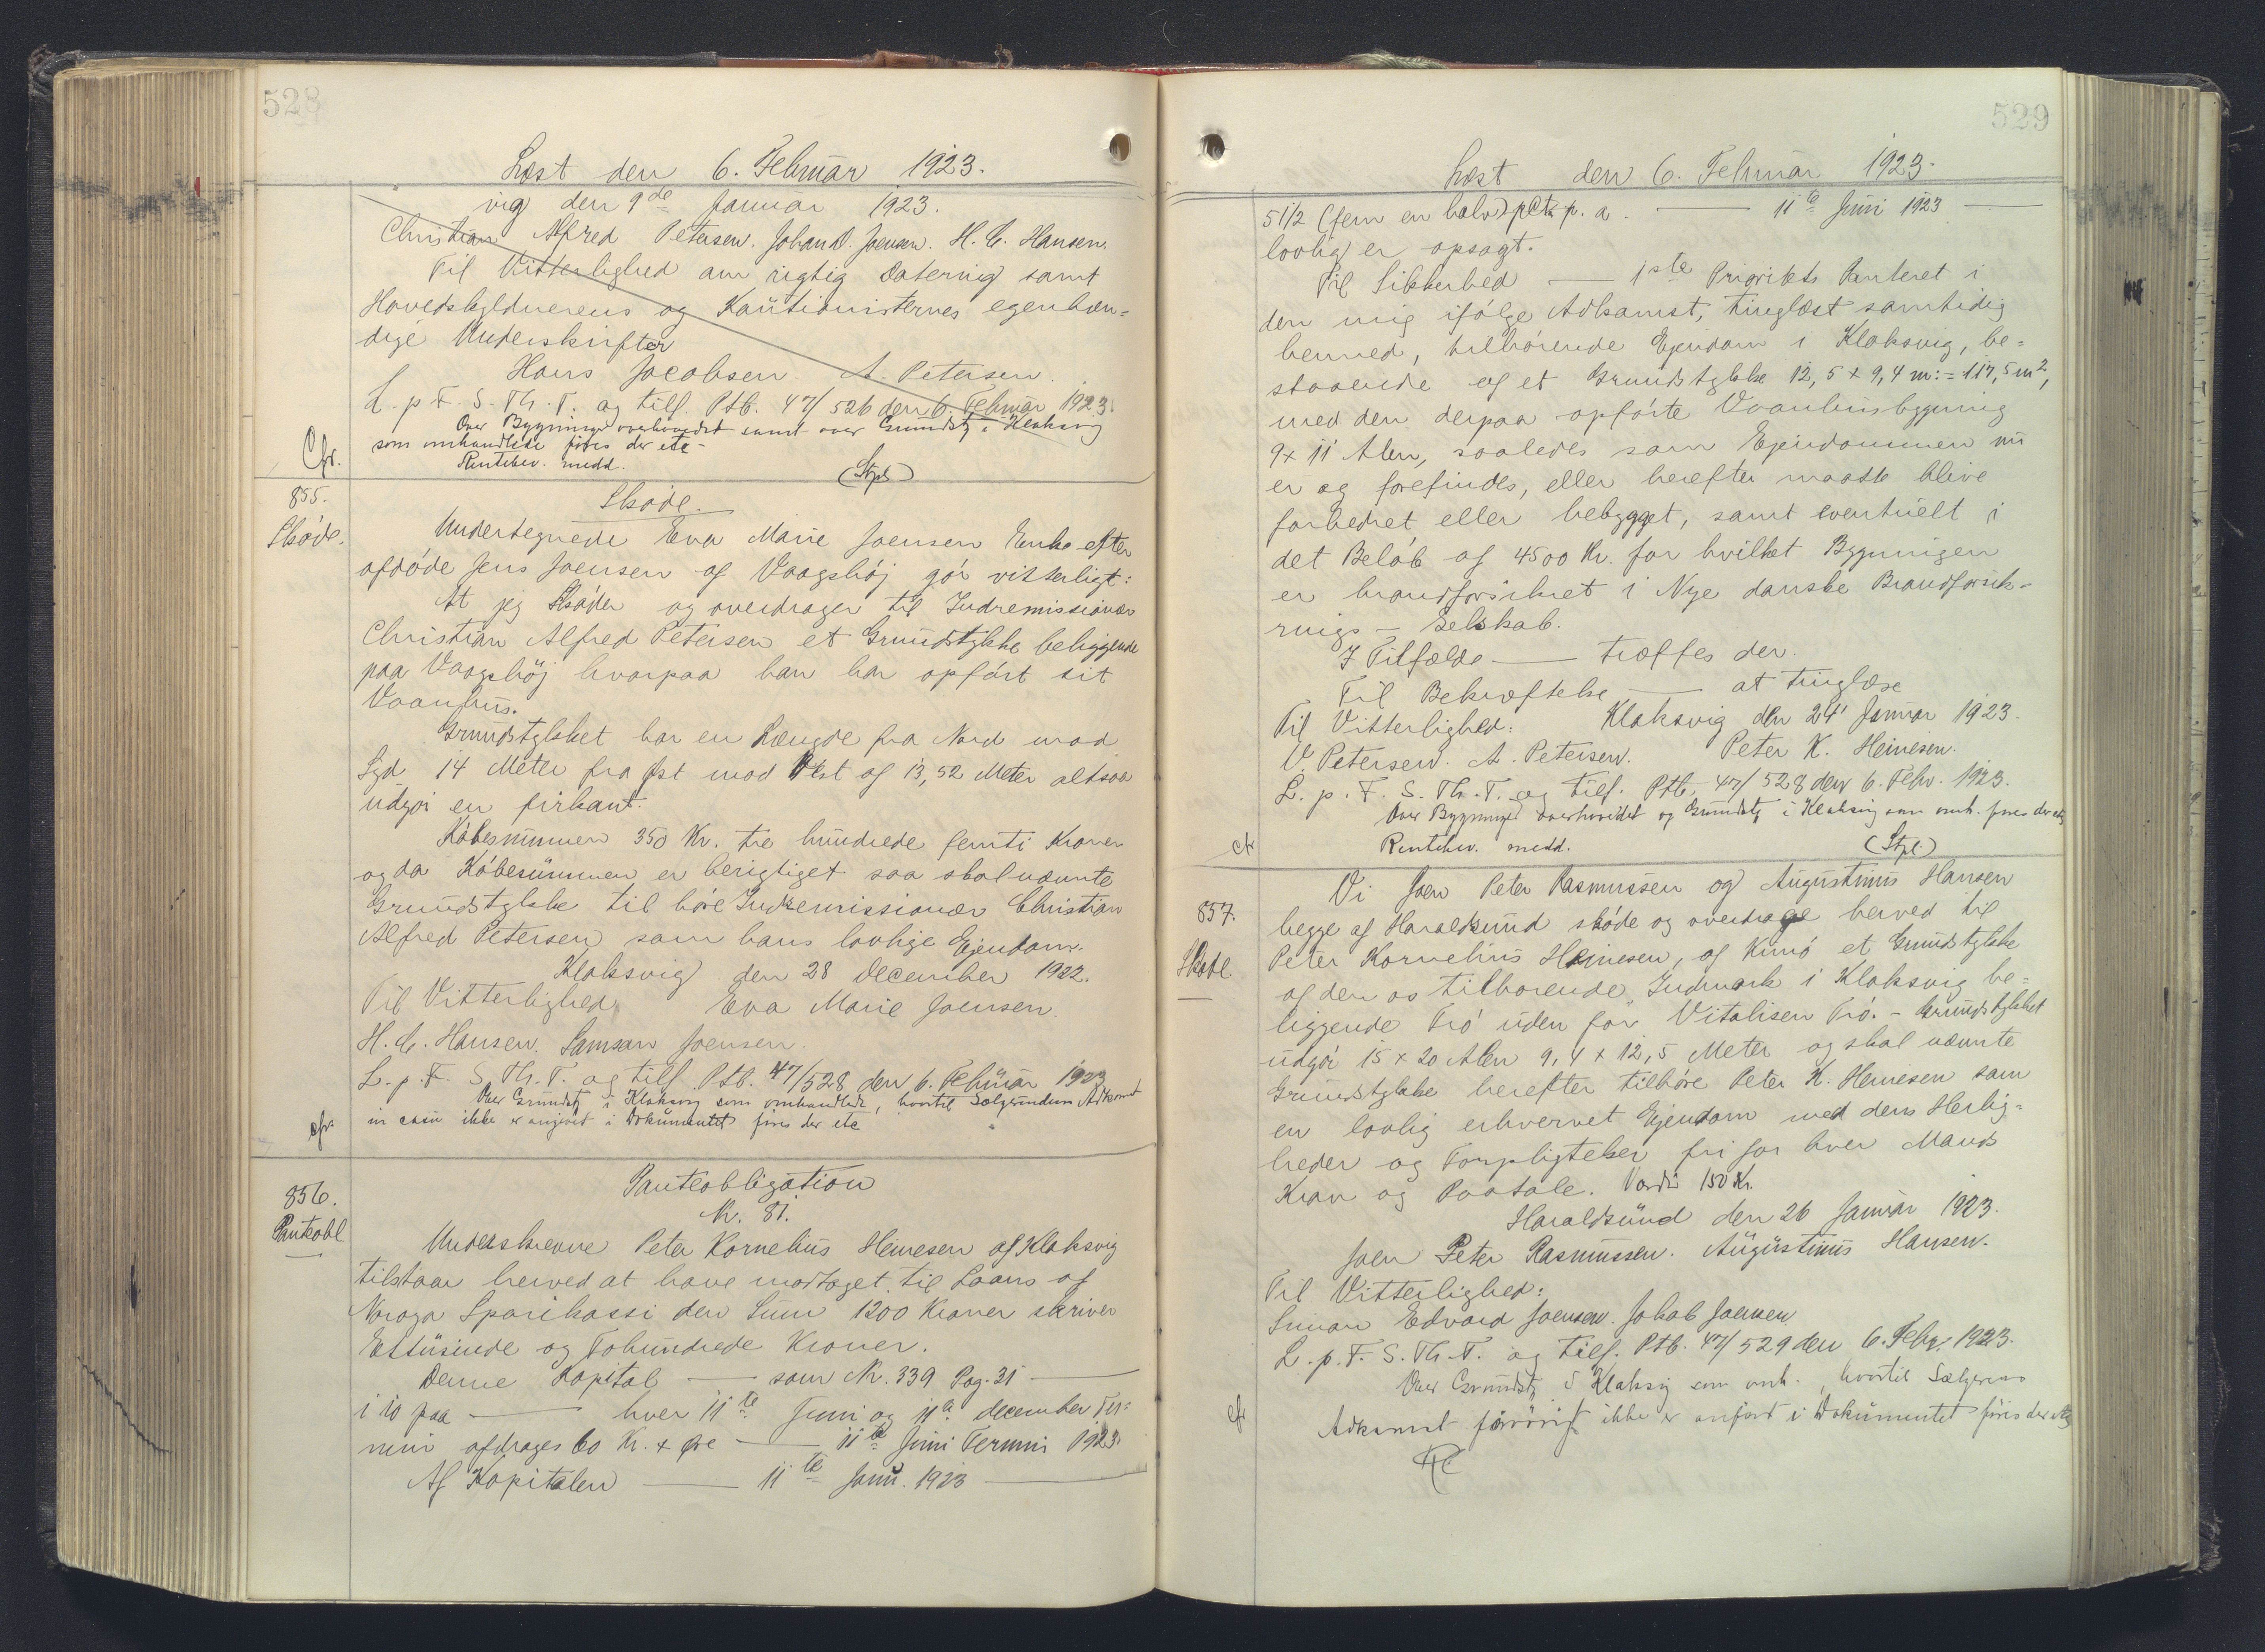 528
Læst den 6. Februar 1923.
vig den 9de Januar 1923.
Christian Alfred Petersen. Johan D. Joensen. H. C. Hansen.
Til Vitterlighed om rigtig Datering samt
Hovedskyldnerens og Kautionisternes egenhæn=
dige Underskrifter
Hans Jacobsen A. Petersen.
L. p. F. S. Th. T. og tilf. Ptb. 47/526 den 6. Februar 1923.
Over Bygninger overhovedet samt over Grundst. i Klaksvig
som omhandlede föres der etc-
Cfr.
Rentebev. medd.
(Stpl)
855.
Skóde.
Skóde.
Undertegnede Eva Marie Joensen Enke efter
afdóde Jens Joensen af Vaagshój gór vitterligt:
At jeg Skóder og overdrager til Indremissionær
Christian Alfred Petersen et Grundstykke beliggende
paa Vaagshój hvorpaa han har opfórt sit
Vaanhus.
Grundstykket har en Længde fra Nord mod
Syd 14 Meter fra Øst mod Vest af 13,52 Meter altsaa
udgór en firkant.
Kóbesummen 350 Kr. tre hundrede femti Kroner
og da Kóbesummen er berigtiget saa skal nævnte
Grundstykke til hóre Indremissionær Christian
Alfred Petersen som hans lovlige Ejendom.
Klaksvig den 28 December 1922.
Til Vitterlighed Eva Marie Joensen.
H. C. Hansen. Samson Joensen.
L. p. F. S. Th. T. og tilf. Ptb. 47/528 den 6. Februar 1923
Over Grundst. i Klaksvig som omhandlede, hvortil Sælgerindens Adkomst
cfr.
in casu ikke er angivet i Dokumentet föres der etc
856.
Panteobl
Panteobligation
Nr. 81.
Underskrevne Peter Kornelius Heinesen af Klaksvig
tilstaar herved at have modtaget til Laans af
Noroya Sparikassi den Sum 1200 Kroner skriver
Ettusinde og Tohundrede Kroner.
Denne Kapital — som Nr. 339 Pag. 31 —
i 10 paa — hver 11te Juni og 11te december Ter=
min afdrages 60 Kr. x Øre — 11te Juni Termin 1923.
Af Kapitalen — 11te Janu. 1923 —
529
Læst den 6. Februar 1923.
5 1/2 (fem en halv) pCt. p. a. — 11te Juni 1923 —
lovlig er opsagt.
Til Sikkerhed — 1ste Prioritets Panteret i
den mig ifólge Adkomst, tinglæst samtidig
hermed, tilhórende Ejendom i Klaksvig, be=
staaende af et Grundstykke 12,5 x 9,4 m: = 117,5 m2,
med den derpaa opfórte Vaanhusbygning
9 x 11 Alen, saaledes som Ejendommen nu
er og forefindes, eller herefter maatte blive
forbedret eller bebygget, samt eventuelt i
det Belób af 4500 Kr. for hvilket Bygningen
er brandforsikret i Nye danske Brandforsik-
rings- Selskab.
I Tilfælde — træffes der.
Til Bekræftelse — at tinglæse
Til Vitterlighed: Klaksvig den 24' Januar 1923.
V. Petersen. A. Petersen. Peter K. Heinesen.
L. p. F. S. Th. T. og tilf. Ptb. 47/528 den 6. Febr. 1923.
Over Bygninger overhovedet og Grundst. i Klaksvig som omh. föres der etc
cfr
Renteber. medd.
(Stpl.)
857.
Skóde
Vi Joen Peter Rasmussen og Augustinus Hansen
begge af Haraldsund skóde og overdrage herved til
Peter Kornelius Heinesen, af Kunó et Grundstykke
af den os tilhórende Indmark i Klaksvig be=
liggende Tró uden for Vitalisen Tró. - Grundstykket
udgór 15 x 20 Alen 9,4 x 12,5 Meter og skal nævnte
Grundstykke herefter tilhóre Peter K. Heinesen som
en lovlig erhvervet Ejendom med dens Herlig=
heder og Forpligtelser fri for hver Mands
Krav og Paatale. Værdi 150 Kr.
Haraldsund den 26 Januar 1923.
Joen Peter Rasmussen. Augustinus Hansen.
Til Vitterlighed:
Simon Edvard Joensen. Jakob Joensen
L. p. F. S. Th. T. og tilf. Ptb. 47/529 den 6. Febr. 1923.
Over Grundst. i Klaksvig som omh. hvortil Sælgerens
cfr
Adkomst forövrigt ikke er anført i Dokumentet föres der etc